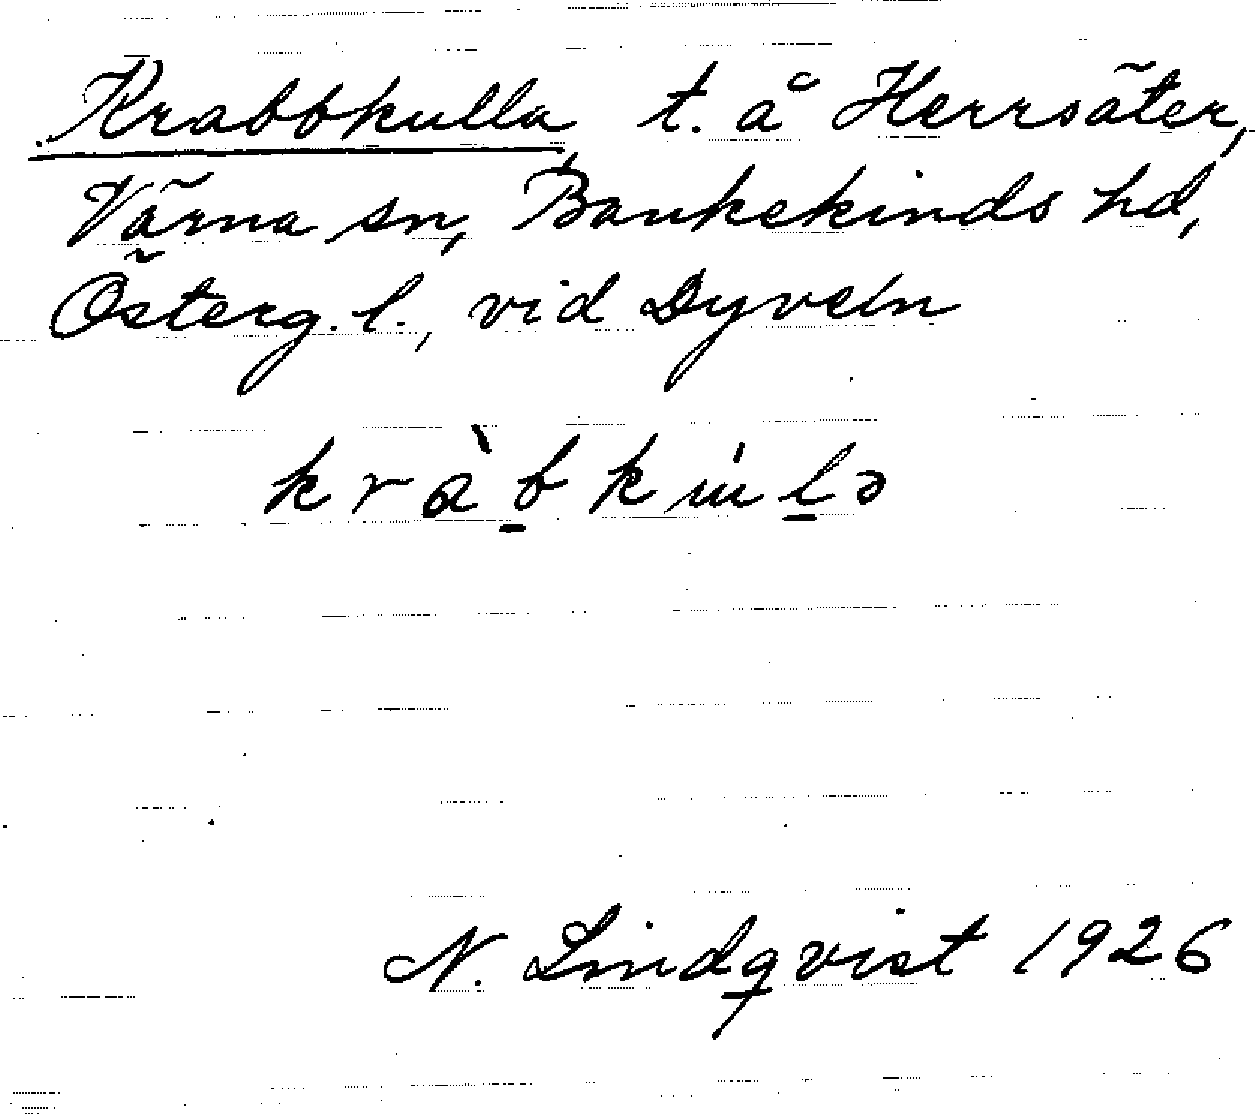 Krabbkulla t. å Herrsäter,
Värna sn, Bankekinds hd,
Österg. l., vid Dyveln
kràb̲kúl̲ə
N. Lindqvist 1926